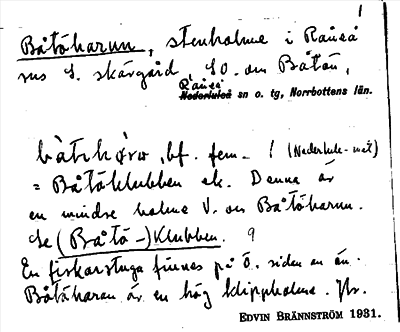 1
Båtöharun, stenholme i Råneå
sns S. skärgård, SO. om Båtön,
Råneå
Nederluleå sn o. tg, Norrbottens län.
bf. fem. (Nederlule-mål)
= Båtöklubben ek. Denna är
en mindre holme V. om Båtöharun.
Se (Båtö-)Klubben.
En fiskarstuga finnes på Ö. sidan av ön.
Båtöharun är en hög klippholme.
EDVIN BRÄNNSTRÖM 1931.